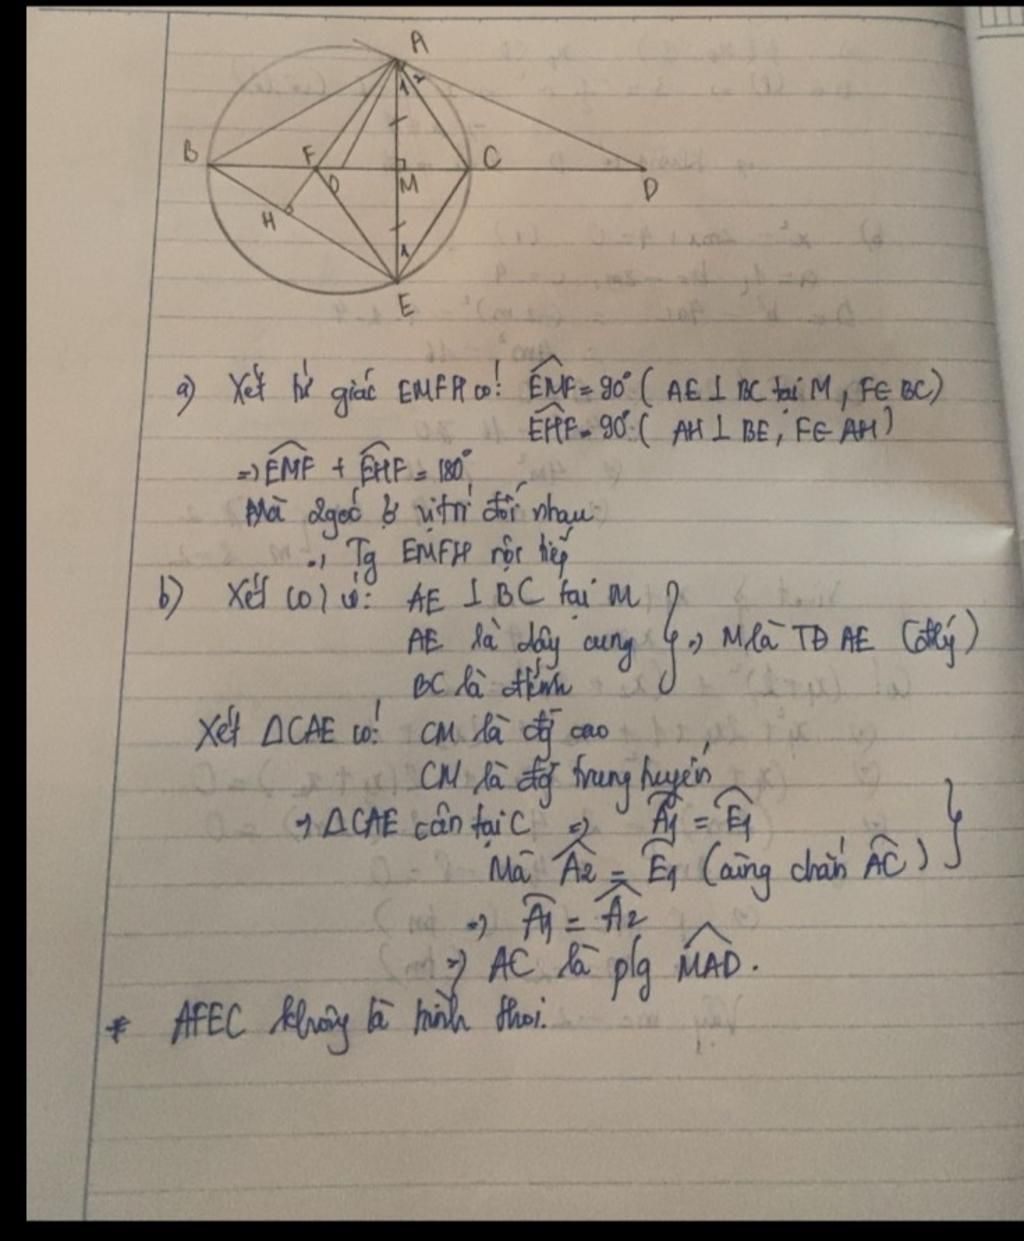 A
1 2
B F C
O M D
H
1
E
a) Xét tứ giác EMFH có: EMF = 90° ( AE ⊥ BC tại M, F∈ BC)
EHF = 90° ( AH ⊥ BE, F∈ AH)
=> EMF + EHF = 180°
Mà 2 góc ở vị trí đối nhau
=> Tg EMFH nội tiếp
b) Xét (O) có: AE ⊥ BC tại M
AE là dây cung } => M là TĐ AE (đlý)
BC là đkính
Xét ΔCAE có: CM là đg cao
CM là đg trung tuyến
=> ΔCAE cân tại C => A1 = E1
Mà A2 = E1 (cùng chắn AC) }
=> A1 = A2
=> AC là p/g MAD.
* AFEC không là hình thoi.